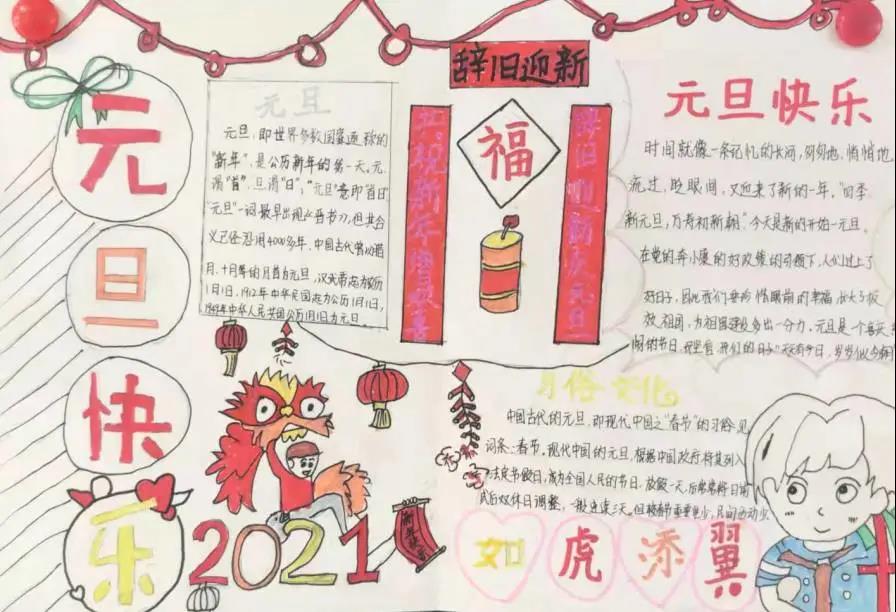 辞旧迎新
元
旦
快
乐
元旦
元旦，即世界多数国家通称的
"新年"，是公历新年的第一天。元，
谓"首"，旦谓"日"；"元旦"意即"首日"
"元旦"一词最早出现《晋书》，但其含
义已经沿用4000多年，中国古代曾以腊
月、十月等的月首为元旦，汉武帝
1月1日，1912年中华民国 为公历1月1日，
1949年中华人民共国 公历1月1日为元旦。
共祝新年
福
辞旧迎新庆元旦
元旦快乐
时间就像一条记忆的长河，匆匆地，悄悄地
流过，眨眼间，又迎来了新的一年，"四季
新元旦，万寿初新朝"。今天是新的开始一元旦。
在党的奔小康的好政策的引领下，人们过上了
好日子，因此我们要珍惜眼前的幸福，长大了
祖国，为祖国建设多出一分力，元旦是一个
的节日，祝 我们的日子 年有今日，岁岁似今朝
习俗文化
中国古代的元旦，即现代中国之"春节"的习俗见
词条：春节。现代中国的元旦，根据中国政府将其列入
法定节假日，成为全国人民的节日。放假一天，后常常将日前
或后双休日调整，一般连续三天。但较春节重要
2021
新年快乐
如
虎
添
翼